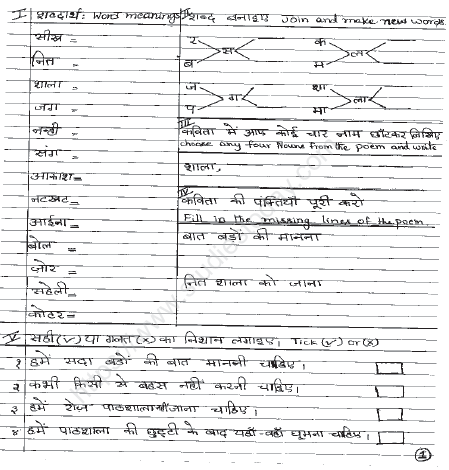 I शब्दार्थ: Word meanings
सीख =
नित =
शाला =
जग =
नन्ही =
संग =
आकाश =
नटखट =
आईना =
बोल =
ज़ोर =
सहेली =
कोटर =
II शब्द बनाइए Join and make new words.
र स क ल
ब म
ज ग शा ला
प मा
III
कविता में आए कोई चार नाम छाँटकर लिखिए
choose any four Nouns from the poem and write
शाला,
IV
कविता की पंक्तियाँ पूरी करो
Fill in the missing lines of the poem
बात बड़ों की मानना
नित शाला को जाना
V सही (√) या गलत (x) का निशान लगाइए। Tick (√) or (x)
१ हमें सदा बड़ों की बात माननी चाहिए।
२ कभी किसी से बहस नहीं करनी चाहिए।
३ हमें रोज़ पाठशाला जाना चाहिए।
४ हमें पाठशाला की छुट्टी के बाद यहाँ-वहाँ घूमना चाहिए।
1